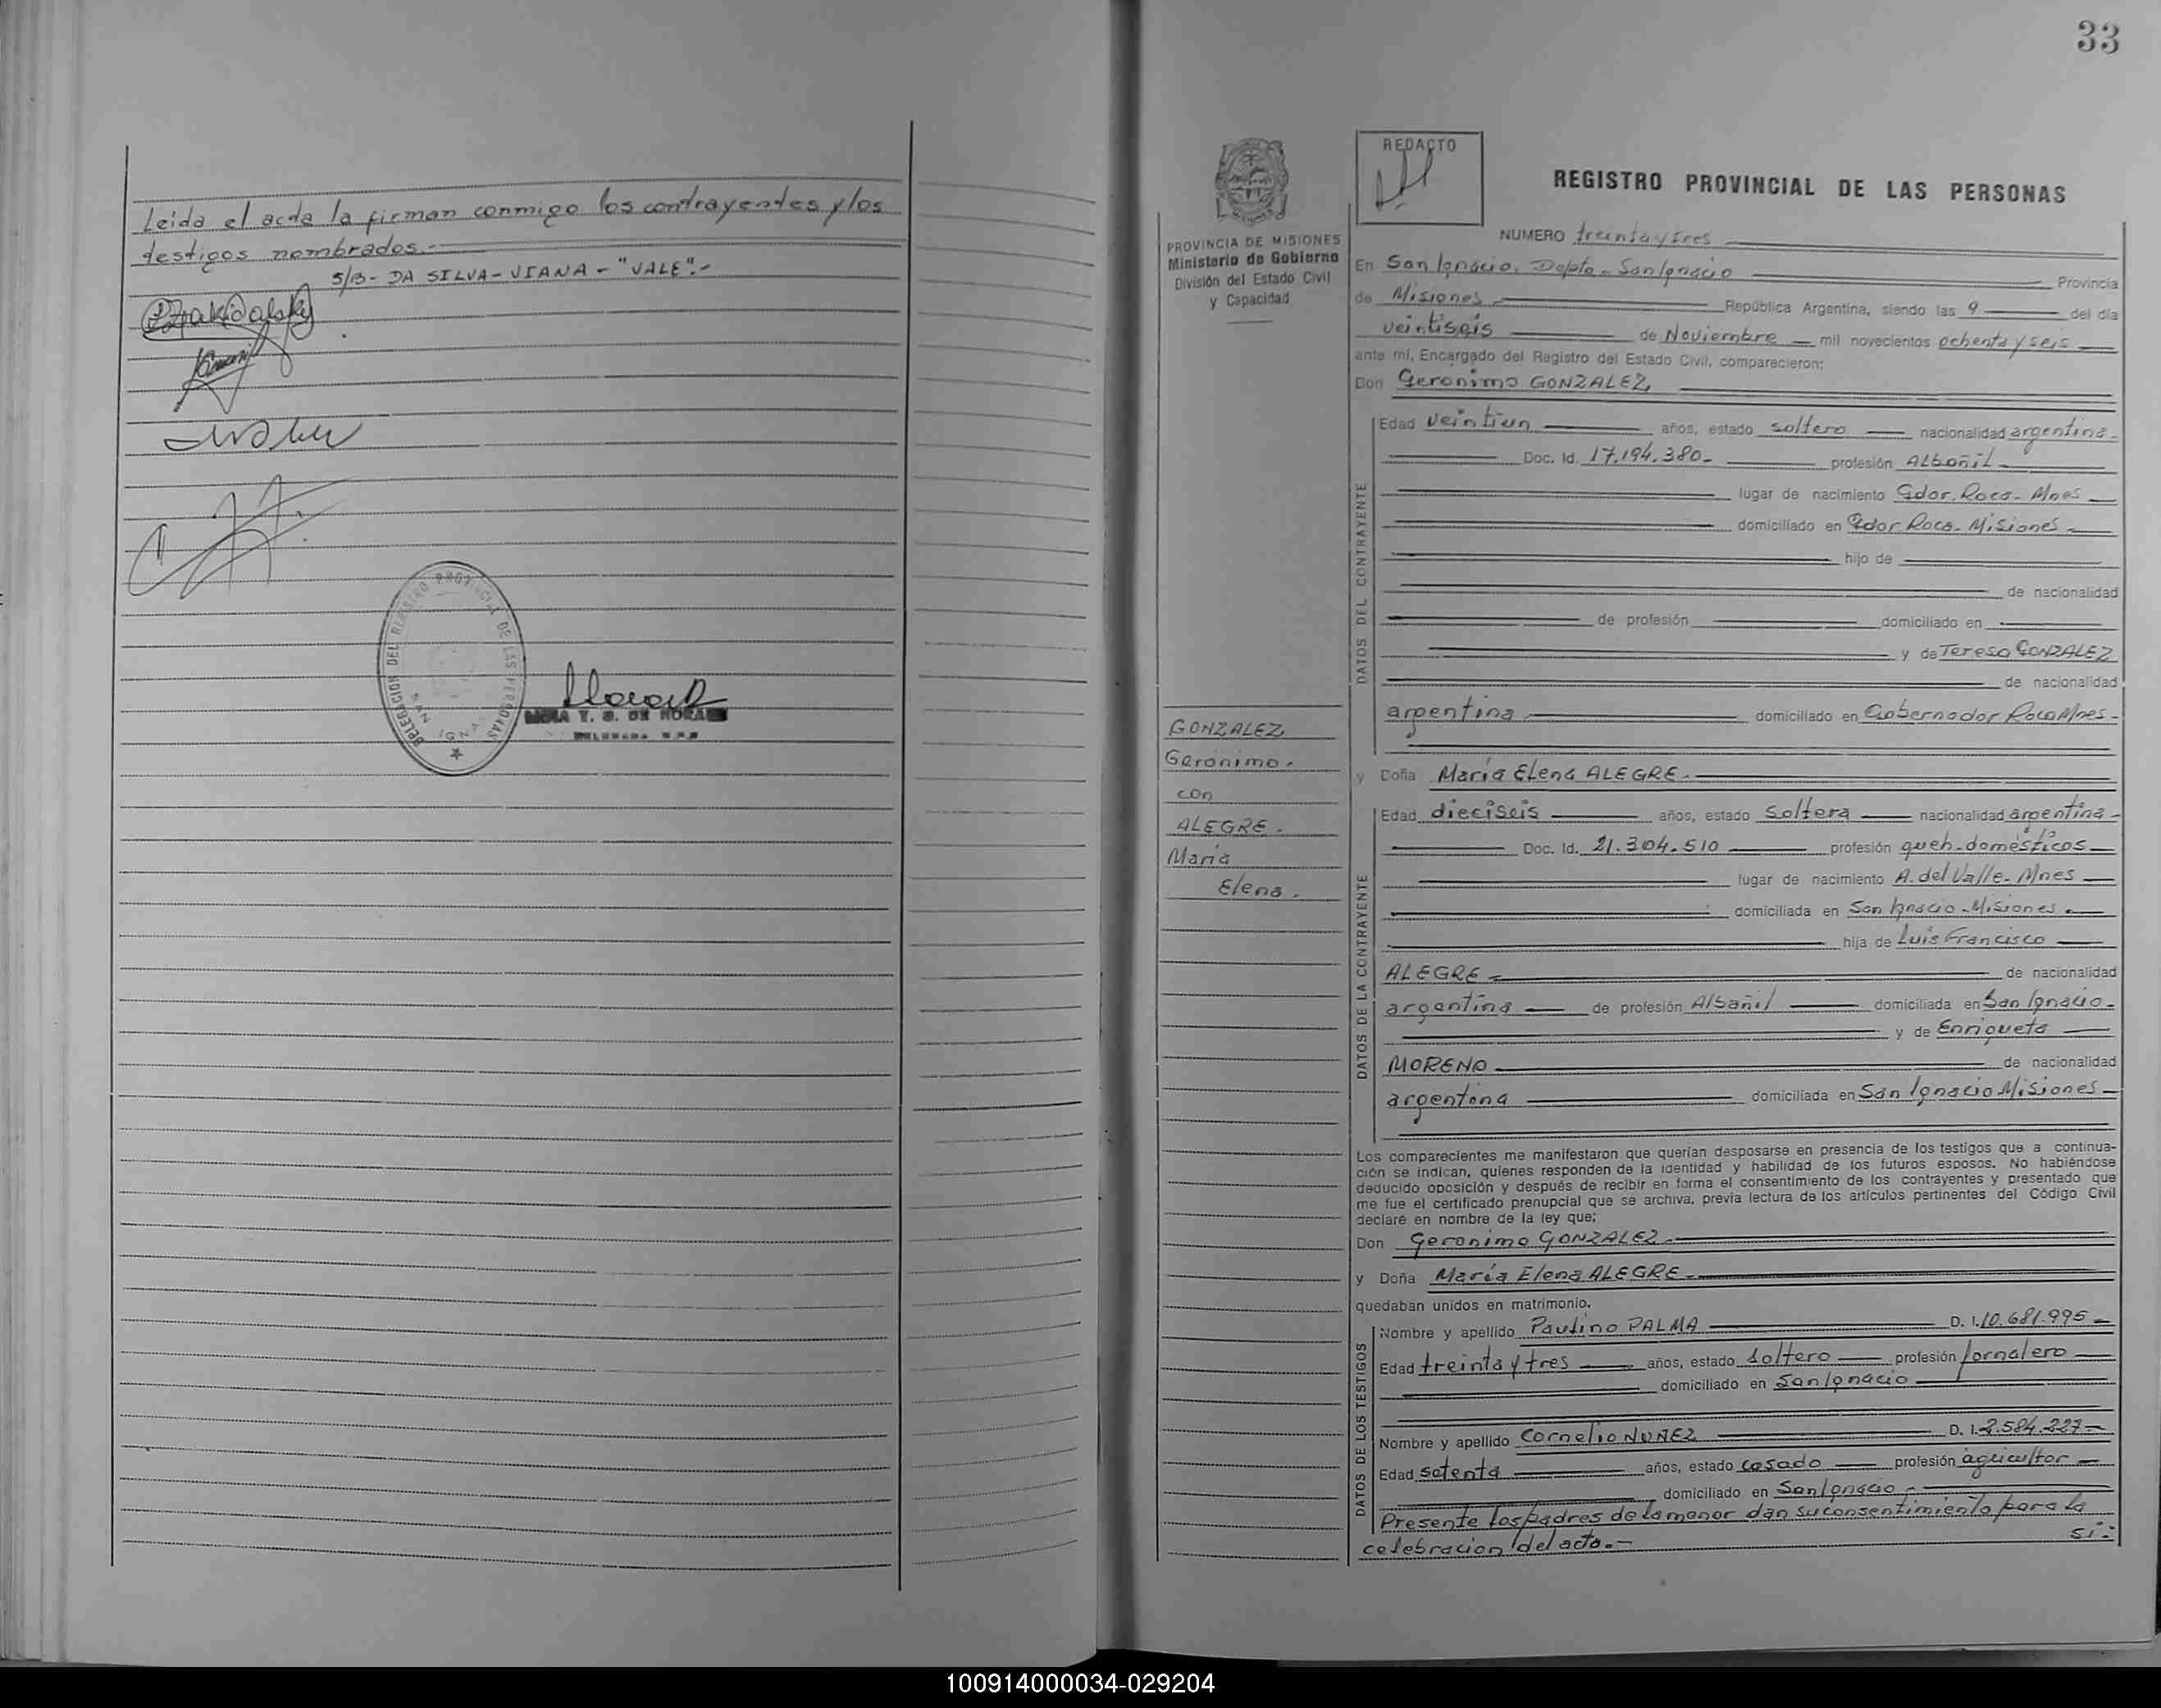 Leida el acta la firman conmigo los contrayentes y los
testigos nombrados.-
S/B- DA SILVA- VIANA - "VALE".-
DELEGACION DEL REGISTRO PROVINCIAL DE LAS PERSONAS
SAN IGNA
33
PROVINCIA DE MISIONES
Ministerio de Gobierno
División del Estado Civil
y Capacidad
GONZALEZ
Gerónimo.
con
ALEGRE.
María
Elena.
REDACTO
REGISTRO PROVINCIAL DE LAS PERSONAS
NUMERO treinta y tres
En San Ignacio. Depto - San Ignacio Provincia
de Misiones República Argentina, siendo las 9 del día
veintiseis de Noviembre mil novecientos ochenta y seis
ante mí, Encargado del Registro del Estado Civil, comparecieron:
Don Geronimo GONZALEZ,
DATOS DEL CONTRAYENTE
Edad veintiun años, estado soltero nacionalidad argentina-
Doc. Id. 17.194.380- profesión Albañil-
lugar de nacimiento Gdor. Roca- Mnes
domiciliado en Gdor Roca- Misiones
hijo de
de nacionalidad
de profesión domiciliado en
y de Teresa GONZALEZ
de nacionalidad
argentina domiciliado en Gobernador Roca Mnes-
y Doña María Elena ALEGRE.
DATOS DE LA CONTRAYENTE
Edad dieciseis años, estado soltera nacionalidad argentina
Doc. Id. 21.304.510 profesión queh-domésticos
lugar de nacimiento A. del Valle- Mnes
domiciliada en San Ignacio-Misiones
hija de Luis Francisco
ALEGRE de nacionalidad
argentina de profesión Albañil domiciliada en San Ignacio-
y de Enriqueta
MORENO de nacionalidad
argentina domiciliada en San Ignacio Misiones
Los comparecientes me manifestaron que querían desposarse en presencia de los testigos que a continua-
ción se indican, quienes responden de la identidad y habilidad de los futuros esposos. No habiéndose
deducido oposición y después de recibir en forma el consentimiento de los contrayentes y presentado que
me fue el certificado prenupcial que se archiva, previa lectura de los artículos pertinentes del Código Civil
declaré en nombre de la ley que:
Don Geronimo GONZALEZ.
y Doña María Elena ALEGRE
quedaban unidos en matrimonio.
DATOS DE LOS TESTIGOS
Nombre y apellido Paulino PALMA D. I. 10.681.995
Edad treinta y tres años, estado soltero profesión Jornalero
domiciliado en San Ignacio
Nombre y apellido Cornelio NUÑEZ D. I. 2.584.227
Edad setenta años, estado casado profesión agricultor
domiciliado en San Ignacio
Presente los padres de la menor dan su consentimiento para la
celebracion del acto.-
si:
100914000034-029204